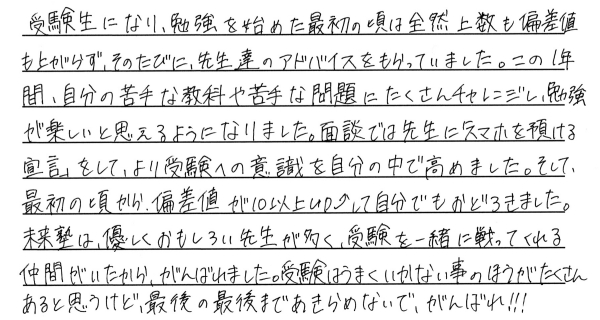 受験生になり、勉強を始めた最初の頃は全然上数も偏差値
も上がらず、そのたびに、先生達のアドバイスをもらっていました。この1年
間、自分の苦手な教科や苦手な問題にたくさんチャレンジし、勉強
が楽しいと思えるようになりました。面談では先生に「スマホを預ける
宣言」をして、より受験への意識を自分の中で高めました。そして、
最初の頃から、偏差値が10以上UP↗して自分でもおどろきました。
未来塾は、優しくおもしろい先生が多く、受験を一緒に戦ってくれる
仲間がいたから、がんばれました。受験はうまくいかない事のほうがたくさん
あると思うけど、最後の最後まであきらめないで、がんばれ!!!